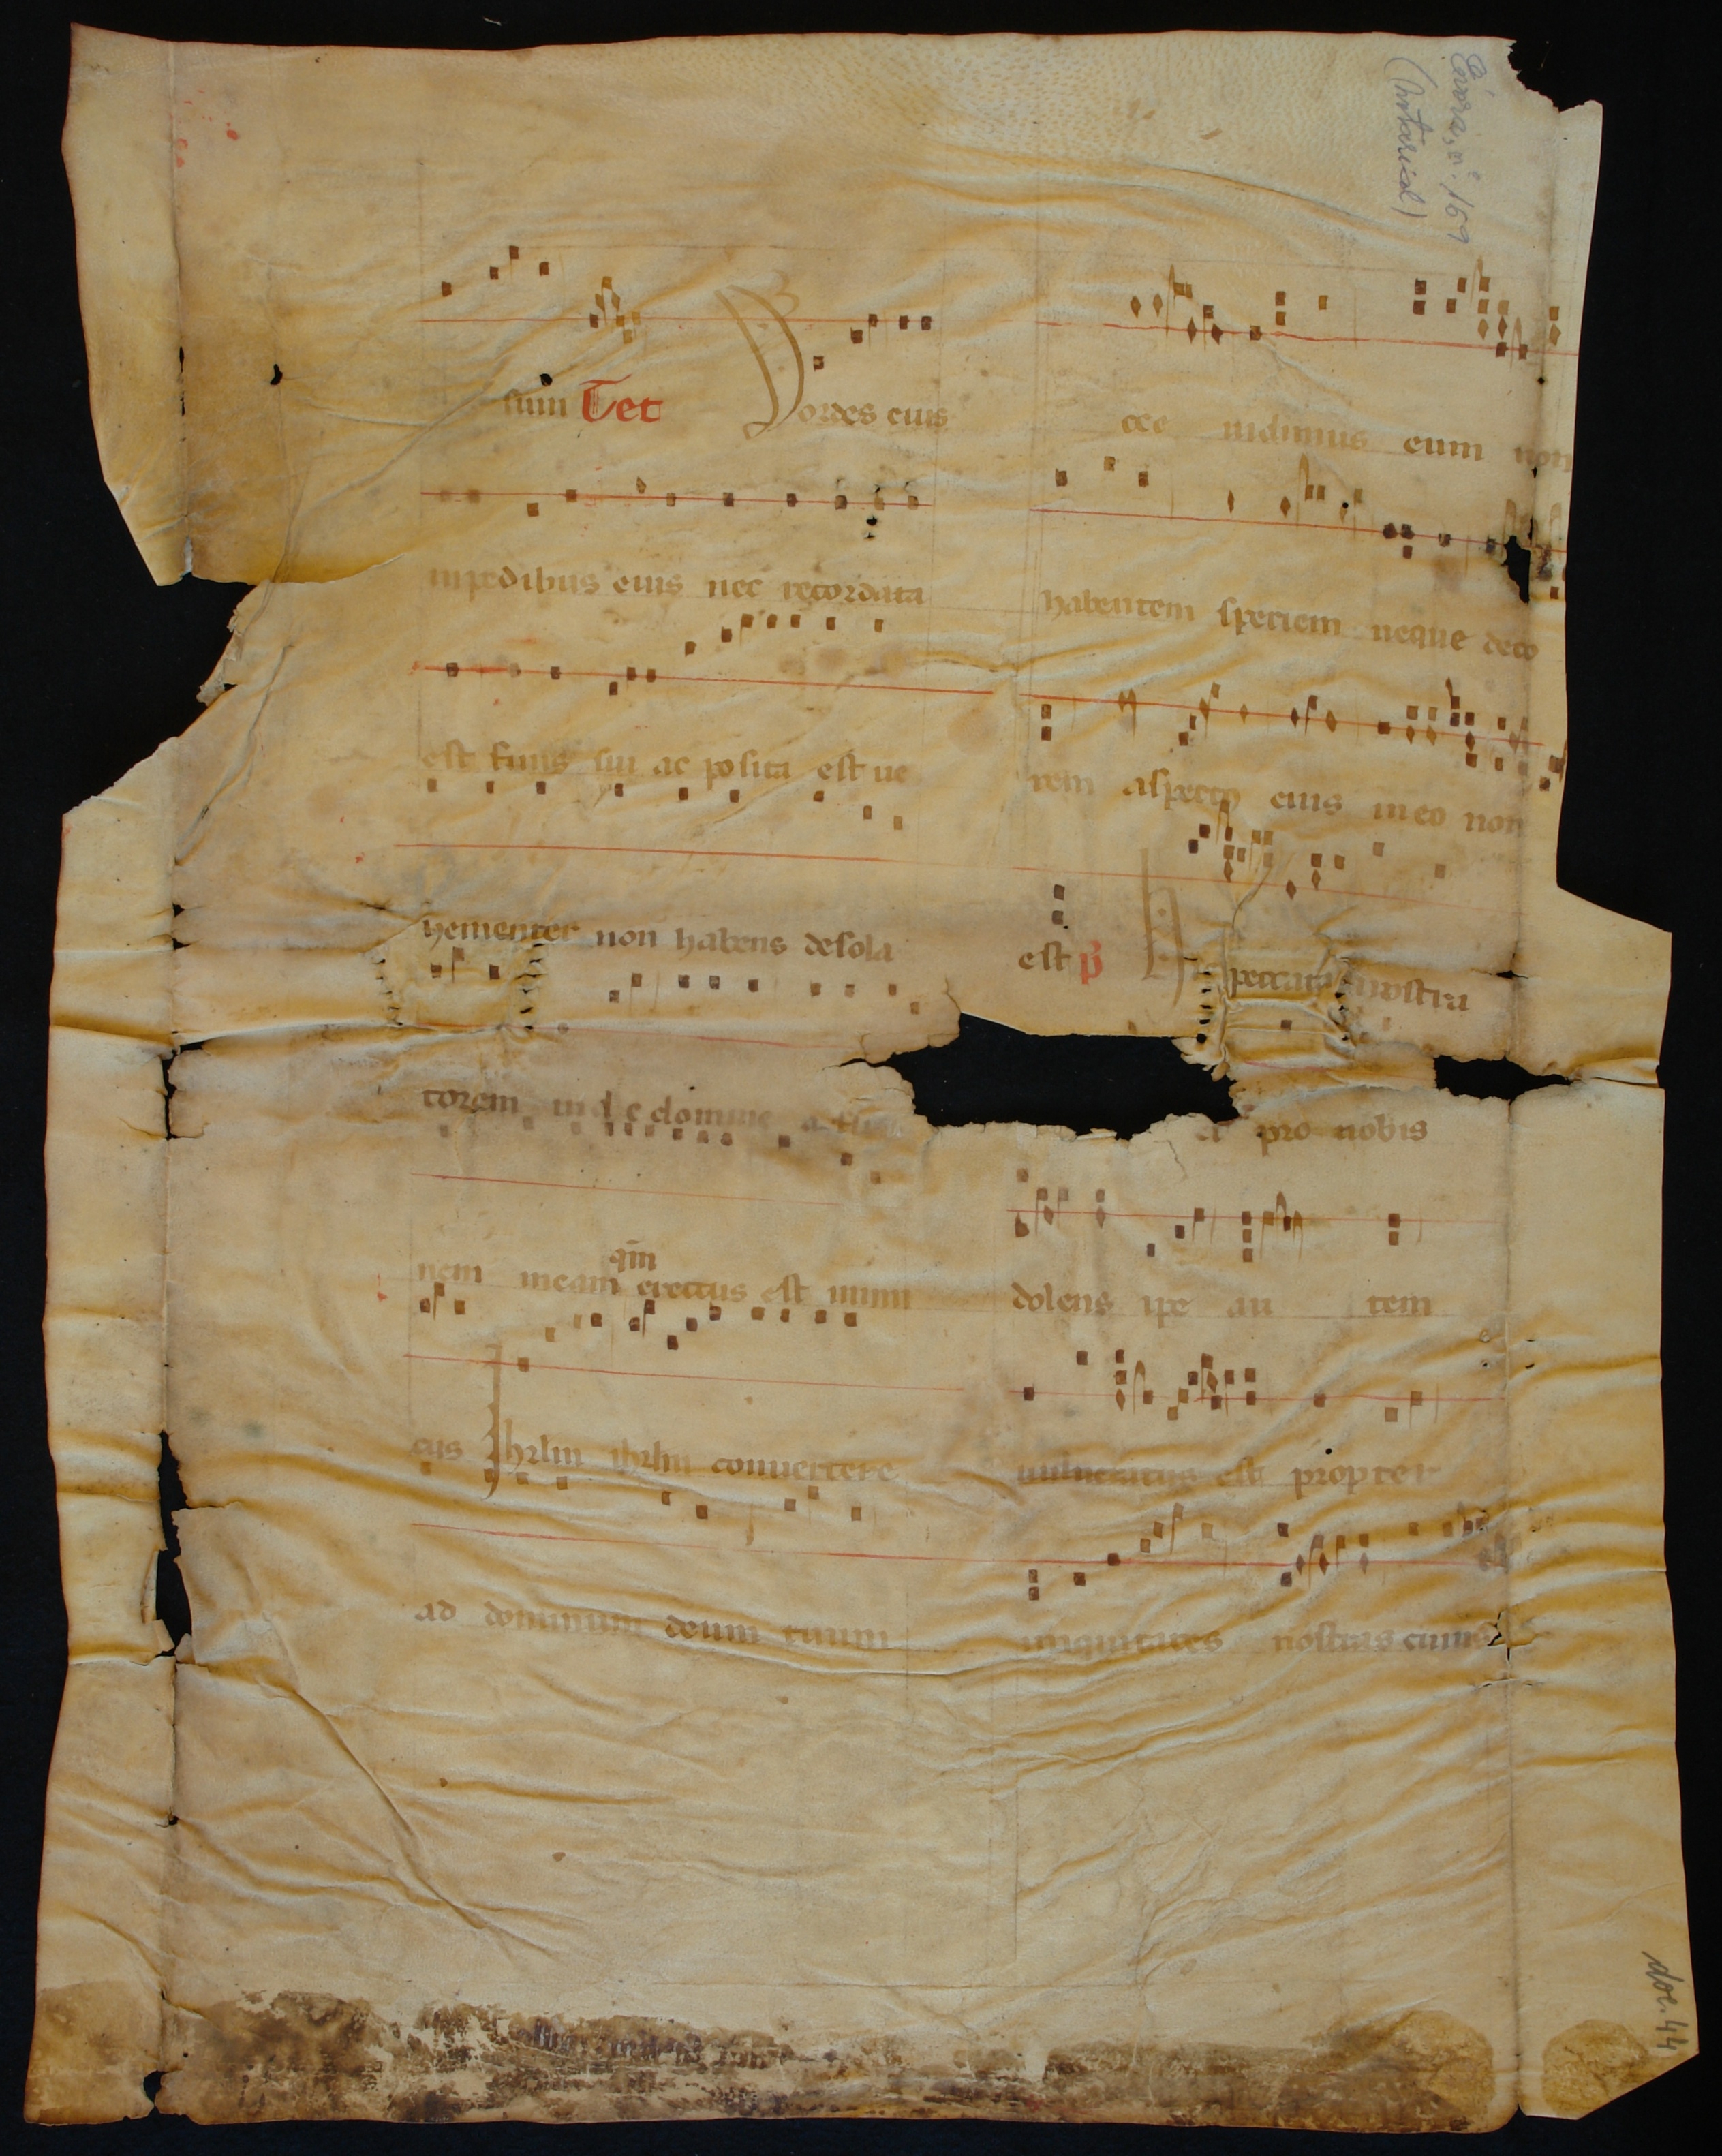 Évora, nº 169
(Notarial)
sum Tet Sordes eius
in pedibus eius nec recordata
est finis sui ac posita est ue
hementer non habens desola
torem uide domine afflictio
nem meam qm̄ erectus est inimi
cus Ihrlm ihrlm conuertere
ad dominum deum tuum
cce uidimus eum non
habentem speciem neque deco
rem aspectus eius in eo non
est hic peccata nostra
et pro nobis
dolens ipe au tem
uulneratus est propter
iniquitates nostras cuius
doc. 44